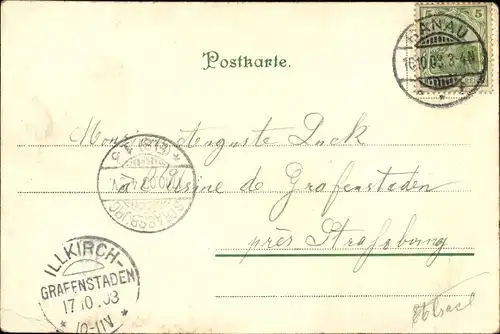 5 5
HANAU
16.10.03 3-4N
Postkarte.
Monsieur Auguste Luck
à l'Usine de Grafenstaden
près Strassburg
STRASSBURG
ILLKIRCH-
GRAFENSTADEN
17 10 .03
* 10-11V *